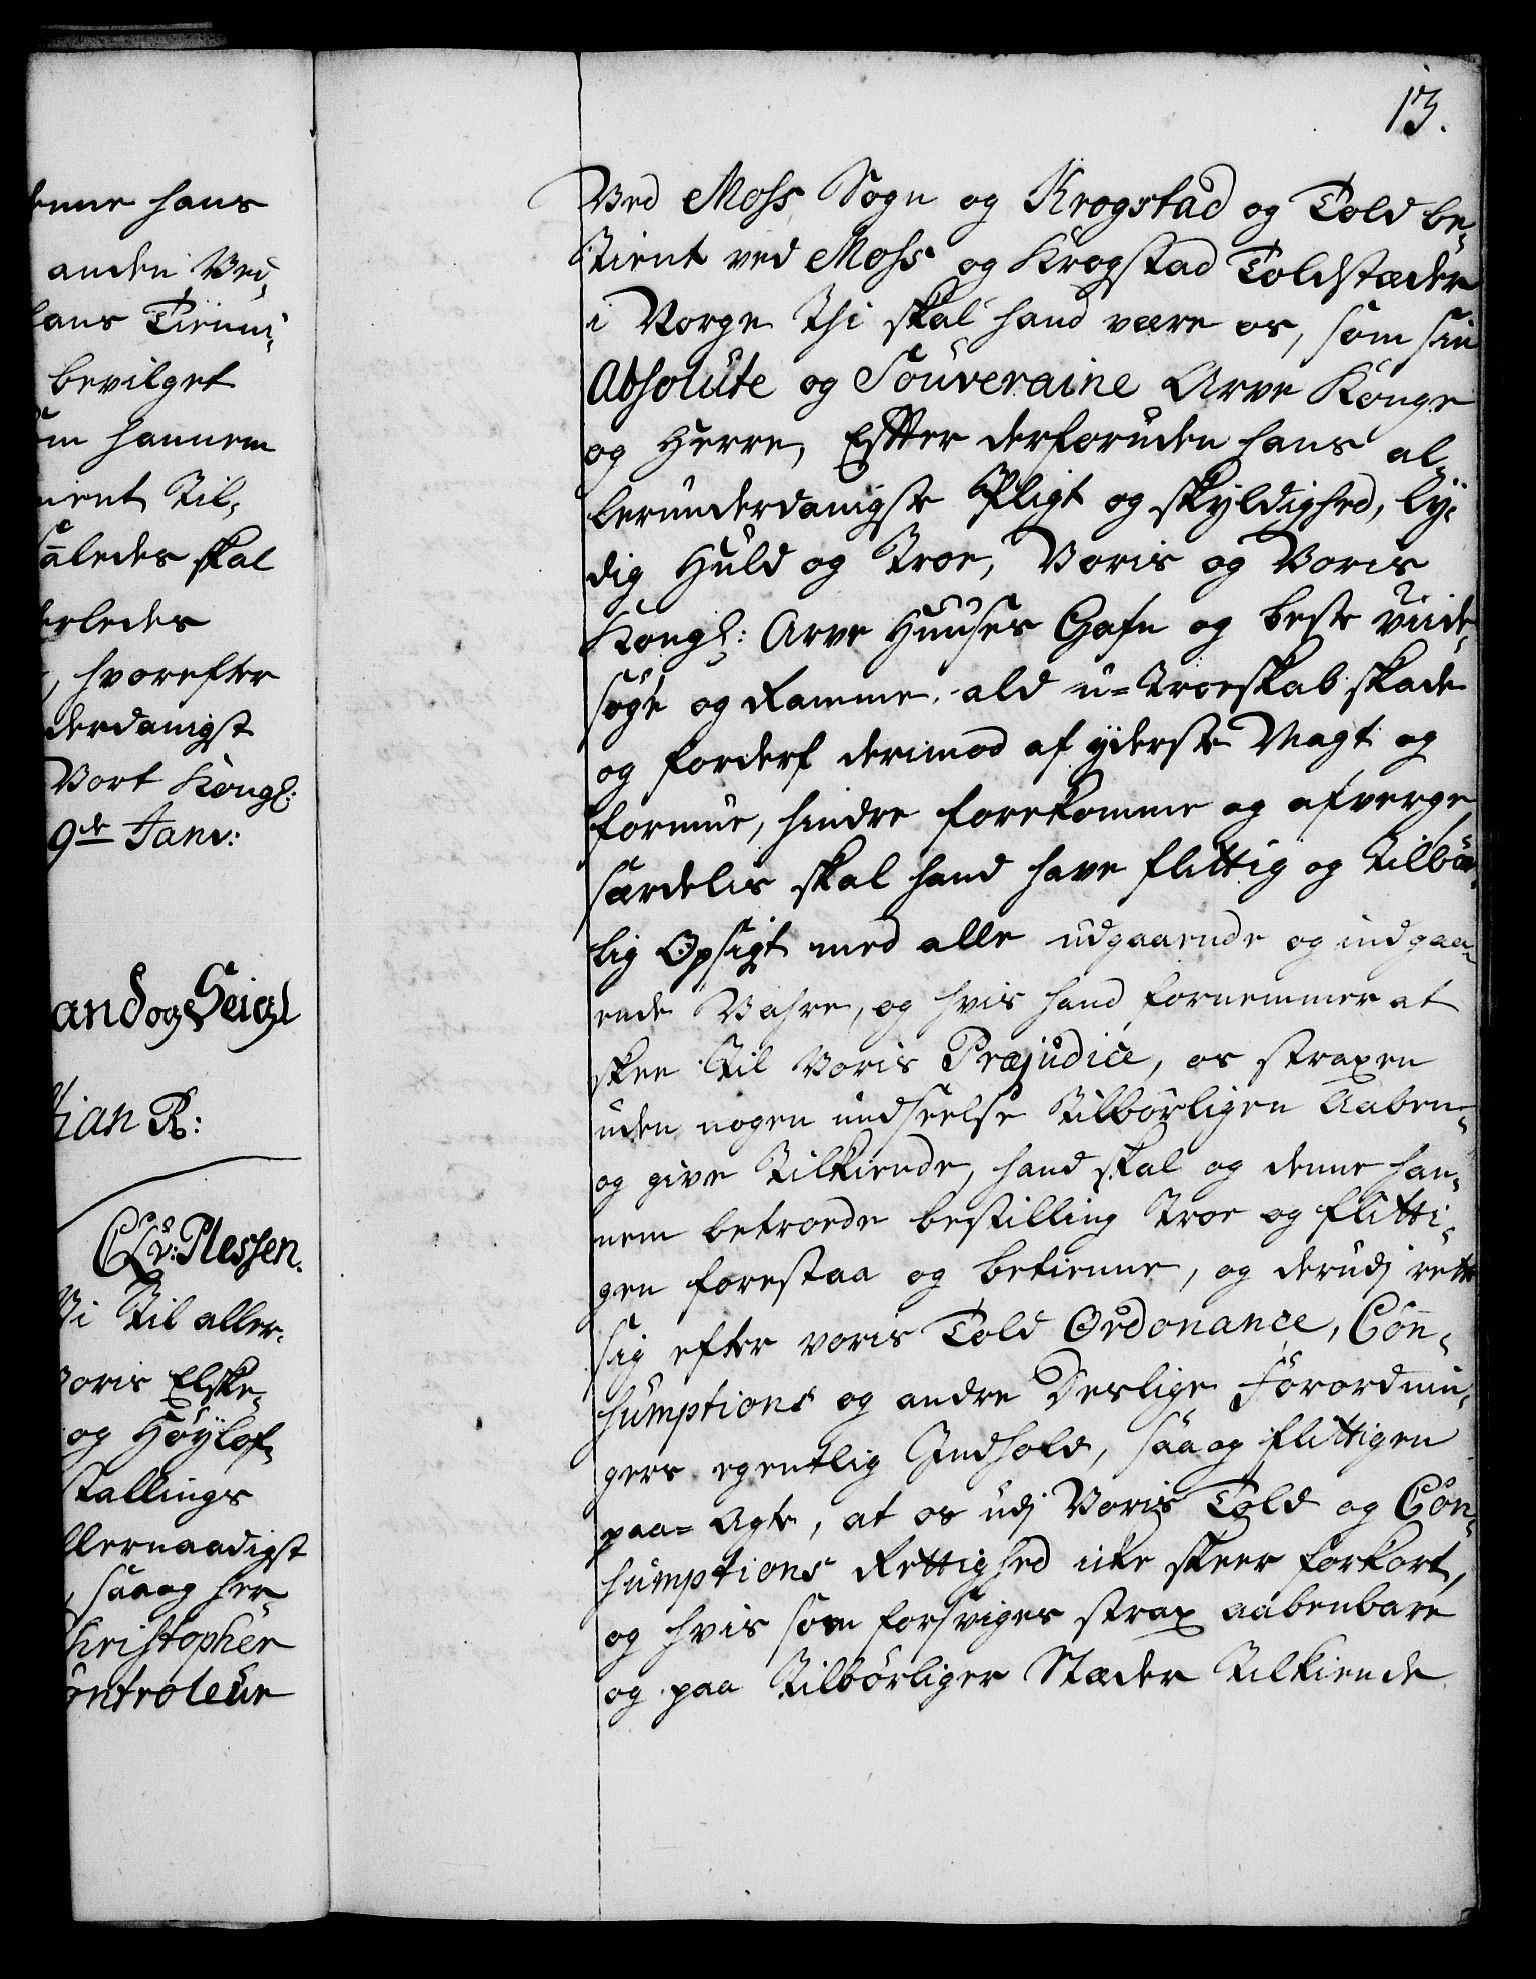 enne hans
anden Ved-
hans Tienni-
bevilget
om hannem
nient til-
saledes skal
erledes
, hvorefter
derdanigst
Vort Kongl:
9de Janv:
and og Seigl
tian R:
CLv: Plessen.
Vi til aller-
Voris Elske-
og Høylof-
stallings
llernaadigst
, saa og her-
Christopher
Controleur
13.
Ved Moss Sogn og Krogstad og Told be-
tient ved Moss og Krogstad Toldstæder
i Norge Thi skal hand være os, som sin
Absolute og Souveraine Arve Konge
og Herre, Efter derforuden hans al-
lerunderdanigste Pligt og skyldighed, ly-
dig Huld og Troe, Voris og Voris
Kongl: Arve Huuses Gafn og beste viide
søge og Ramme, ald u-troeskab skade
og forderf derimod af yderste Magt og
formue, hindre forekomme og afverge,
særdelis skal hand have flittig og tilbør-
lig Opsigt med alle udgaaende og indgaa-
ende Vahre, og hvis hand fornemmer at
skee til Voris Præjudice, os straxen
uden nogen undseelse tilbørligen Aaben-
og give tilkiende, hand skal og denne han-
nem betroede bestilling troe og flitti-
gen forestaa og betienne, og derudj rette
sig efter voris Told Ordonance, Con-
sumptions og andre Deslige Forordnin-
gers egentlig Indhold, saa og flittigen
paa-Agte, at os udj Voris Told og Con-
sumptions Rettighed icke skeer forkort,
og hvis som forsviges strax aabenbare
og paa tilbørliger Stæder tilkiende